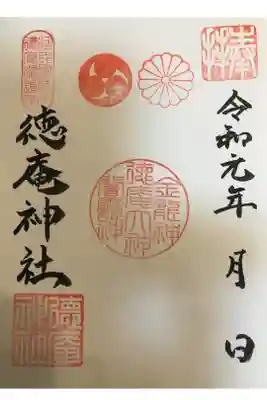 奉拝
令和元年 月 日
金龍神
徳庵大神
徳庵神社
徳庵
神社